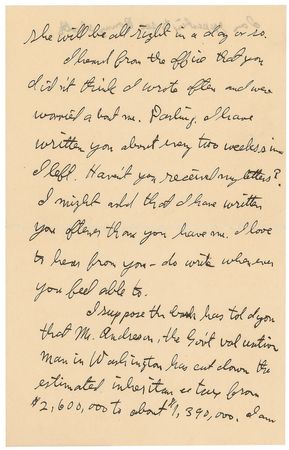 she will be all right in a day or so.
I heard from the office that you
did'nt think I wrote often and were
worried about me. Darling, I have
written you about every two weeks, since
I left. Haven't you received my letters?
I might add that I have written
you oftener than you have me. I love
to hear from you - do write whenever
you feel able to.
I suppose the bank has told you
that Mr. Andreson, the Gov't valuation
man in Washington has cut down the
estimated inheritance tax from
$2,600,000 to about $1,390,000. I am